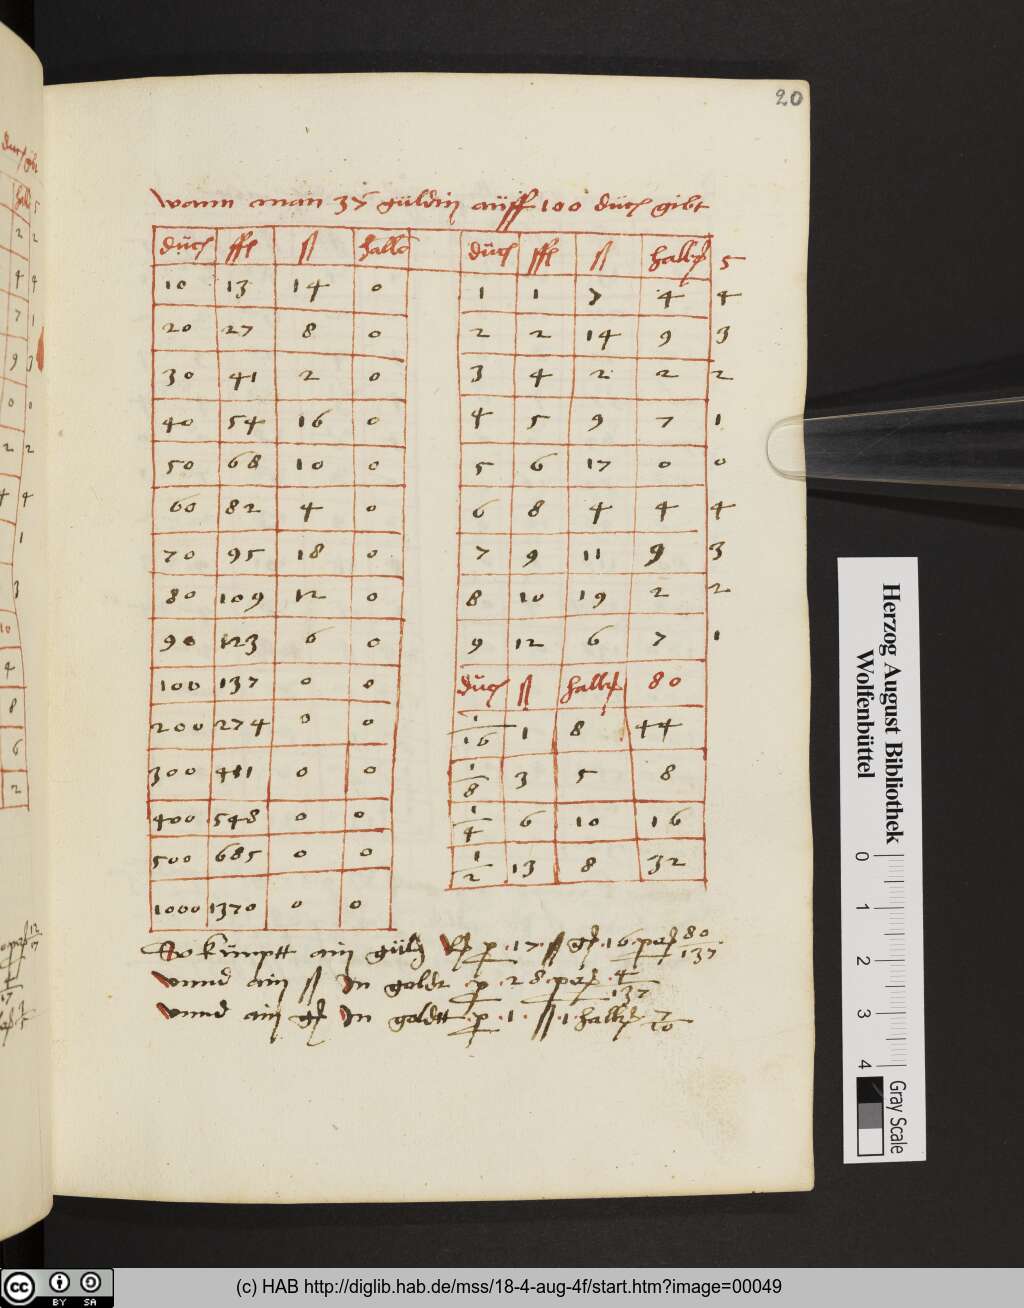 20
wann man 37 güldin aüff 100 düc gibt
düc ffl ß hallr
10 13 14 0
20 27 8 0
30 41 2 0
40 54 16 0
50 68 10 0
60 82 4 0
70 95 18 0
80 109 12 0
90 123 6 0
100 137 0 0
200 274 0 0
300 411 0 0
400 548 0 0
500 685 0 0
1000 1370 0 0
düc ffl ß hallr 5
1 1 7 4 4
2 2 14 9 3
3 4 2 2 2
4 5 9 7 1
5 6 17 0 0
6 8 4 4 4
7 9 11 9 3
8 10 19 2 2
9 12 6 7 1
düc ß hallr 80
1/16 1 8 44
1/8 3 5 8
1/4 6 10 16
1/2 13 8 32
So kümptt ain p 17 ß 16 80/137
vnnd ain ß In goldt p 28 4/137
vnnd ain In goldtt p 1 ß 1 hallr 7/10
Herzog August Bibliothek
Wolfenbüttel
0 1 2 3 4
Gray Scale
cc BY SA
(c) HAB http://diglib.hab.de/mss/18-4-aug-4f/start.htm?image=00049